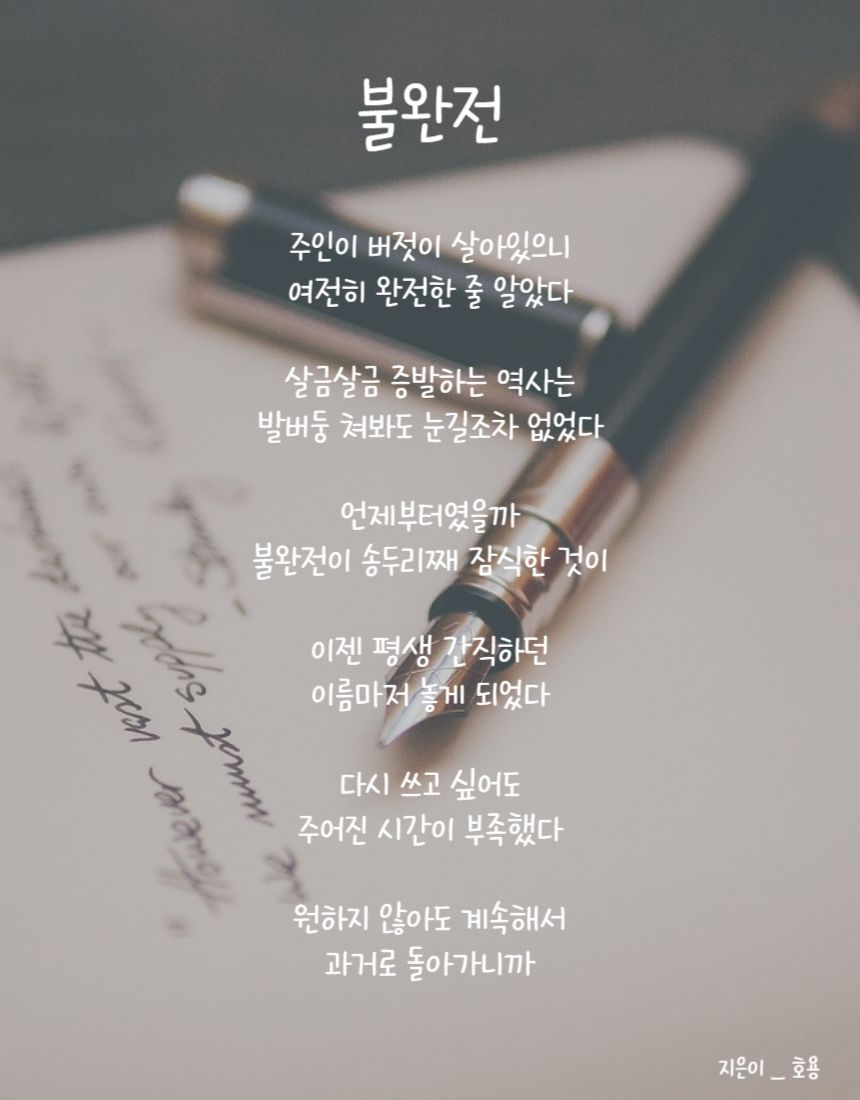 불완전
주인이 버젓이 살아있으니
여전히 완전한 줄 알았다
살금살금 증발하는 역사는
발버둥 쳐봐도 눈길조차 없었다
언제부터였을까
불완전이 송두리째 잠식한 것이
이젠 평생 간직하던
이름마저 놓게 되었다
다시 쓰고 싶어도
주어진 시간이 부족했다
원하지 않아도 계속해서
과거로 돌아가니까
지은이 _ 호용
"However vast the darkness
we must supply our own